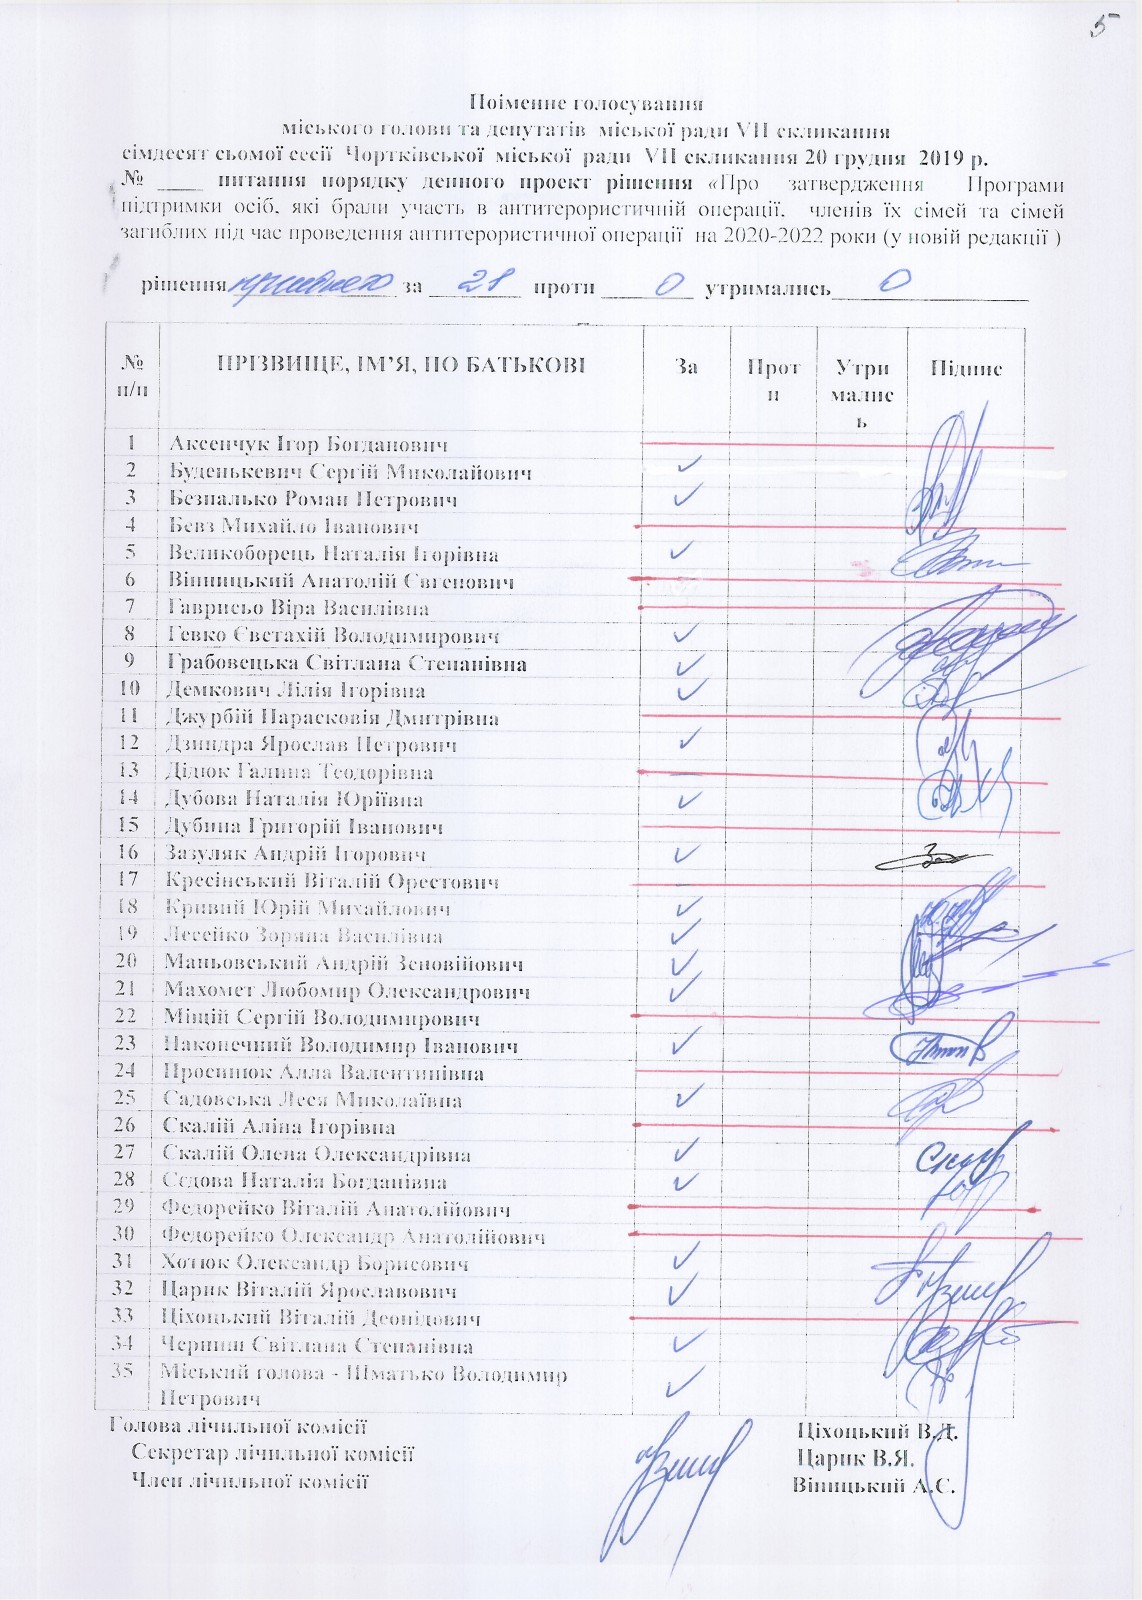 5
Поіменне голосування
міського голови та депутатів міської ради VII скликання
сімдесят сьомої сесії Чортківської міської ради VII скликання 20 грудня 2019 р.
№ ____ питання порядку денного проект рішення «Про затвердження Програми
підтримки осіб, які брали участь в антитерористичній операції, членів їх сімей та сімей
загиблих під час проведення антитерористичної операції на 2020-2022 роки (у новій редакції )
рішення за проти 0 утримались 0
№ п/п ПРІЗВИЩЕ, ІМ’Я, ПО БАТЬКОВІ За Проти Утримались Підпис
1 Аксенчук Ігор Богданович
2 Буденькевич Сергій Миколайович ✓
3 Безпалько Роман Петрович ✓
4 Бевз Михайло Іванович
5 Великоборець Наталія Ігорівна ✓
6 Вінницький Анатолій Євгенович
7 Гаврисьо Віра Василівна
8 Гевко Євстахій Володимирович ✓
9 Грабовецька Світлана Степанівна ✓
10 Демкович Лілія Ігорівна ✓
11 Джурбій Парасковія Дмитрівна
12 Дзиндра Ярослав Петрович ✓
13 Дідюк Галина Теодорівна
14 Дубова Наталія Юріївна ✓
15 Дубина Григорій Іванович
16 Зазуляк Андрій Ігорович ✓
17 Кресінський Віталій Орестович
18 Кривий Юрій Михайлович ✓
19 Лесейко Зоряна Василівна ✓
20 Маньовський Андрій Зеновійович ✓
21 Махомет Любомир Олександрович ✓
22 Міщій Сергій Володимирович
23 Наконечний Володимир Іванович ✓
24 Просинюк Алла Валентинівна
25 Садовська Леся Миколаївна ✓
26 Скалій Аліна Ігорівна
27 Скалій Олена Олександрівна ✓
28 Сєдова Наталія Богданівна ✓
29 Федорейко Віталій Анатолійович
30 Федорейко Олександр Анатолійович
31 Хотюк Олександр Борисович ✓
32 Царик Віталій Ярославович ✓
33 Ціхоцький Віталій Деонідович
34 Черниш Світлана Степанівна ✓
35 Міський голова - Шматько Володимир
Петрович ✓
Голова лічильної комісії Ціхоцький В.Д.
Секретар лічильної комісії Царик В.Я.
Член лічильної комісії Вінницький А.Є.